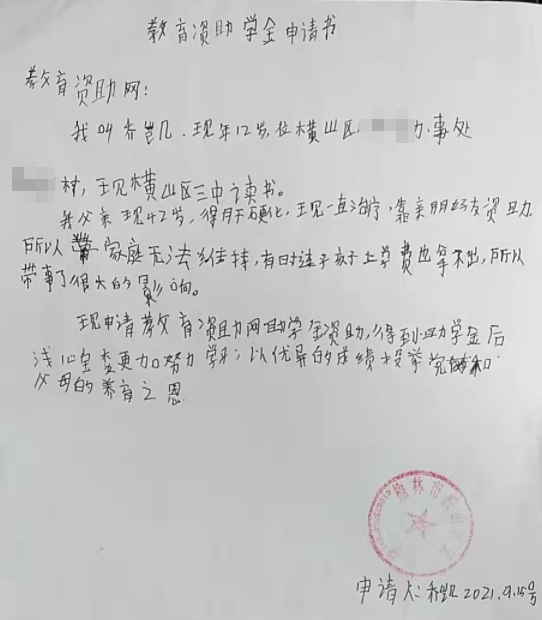 教育资助学金申请书
教育资助网:
我叫乔岂几.现年12岁,位横山区,办事处
村,现横山区三中读书。
我父亲现42岁,得肝硬化,现一直治疗,靠亲朋好友资助.
所以家庭无法维持,有时连孩子上学费也拿不出,所以
带来了很大的影响。
现申请教育资助网助学金资助,得到助学金后
我必更加努力学习,以优异的成绩报答党和
父母的养育之恩
榆林市
申请人: 2021.9.15号